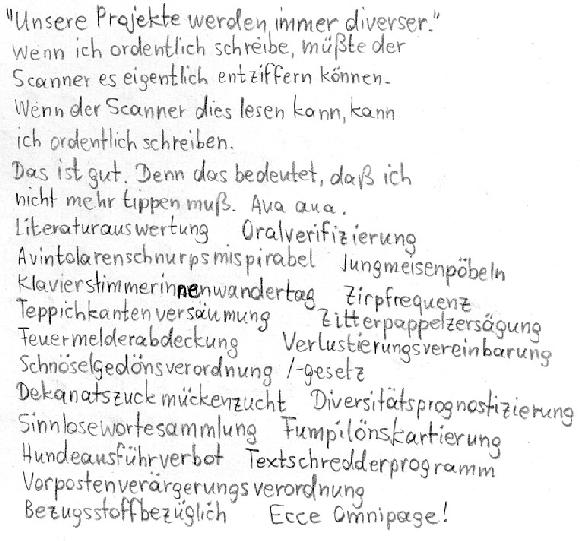 "Unsere Projekte werden immer diverser."
Wenn ich ordentlich schreibe, müßte der
Scanner es eigentlich entziffern können.
Wenn der Scanner dies lesen kann, kann
ich ordentlich schreiben.
Das ist gut. Denn das bedeutet, daß ich
nicht mehr tippen muß. Aua aua.
Literaturauswertung Oralverifizierung
Avintolarenschnurpsmispirabel Jungmeisenpöbeln
Klavierstimmerinnenwandertag Zirpfrequenz
Teppichkantenversäumung Zitterpappelzersägung
Feuermelderabdeckung Verlustierungsvereinbarung
Schnöselgedönsverordnung /-gesetz
Dekanatszuckmückenzucht Diversitätsprognostizierung
Sinnlosewortesammlung Fumpilönskartierung
Hundeausführverbot Textschredderprogramm
Vorpostenverärgerungsverordnung
Bezugsstoffbezüglich Ecce Omnipage!